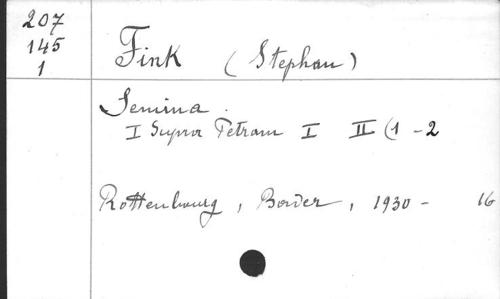 207
145
1
Fink (Stephan)
Semina.
I Supra Petram I II (1-2
Rottenbourg, Bader, 1930 - 16